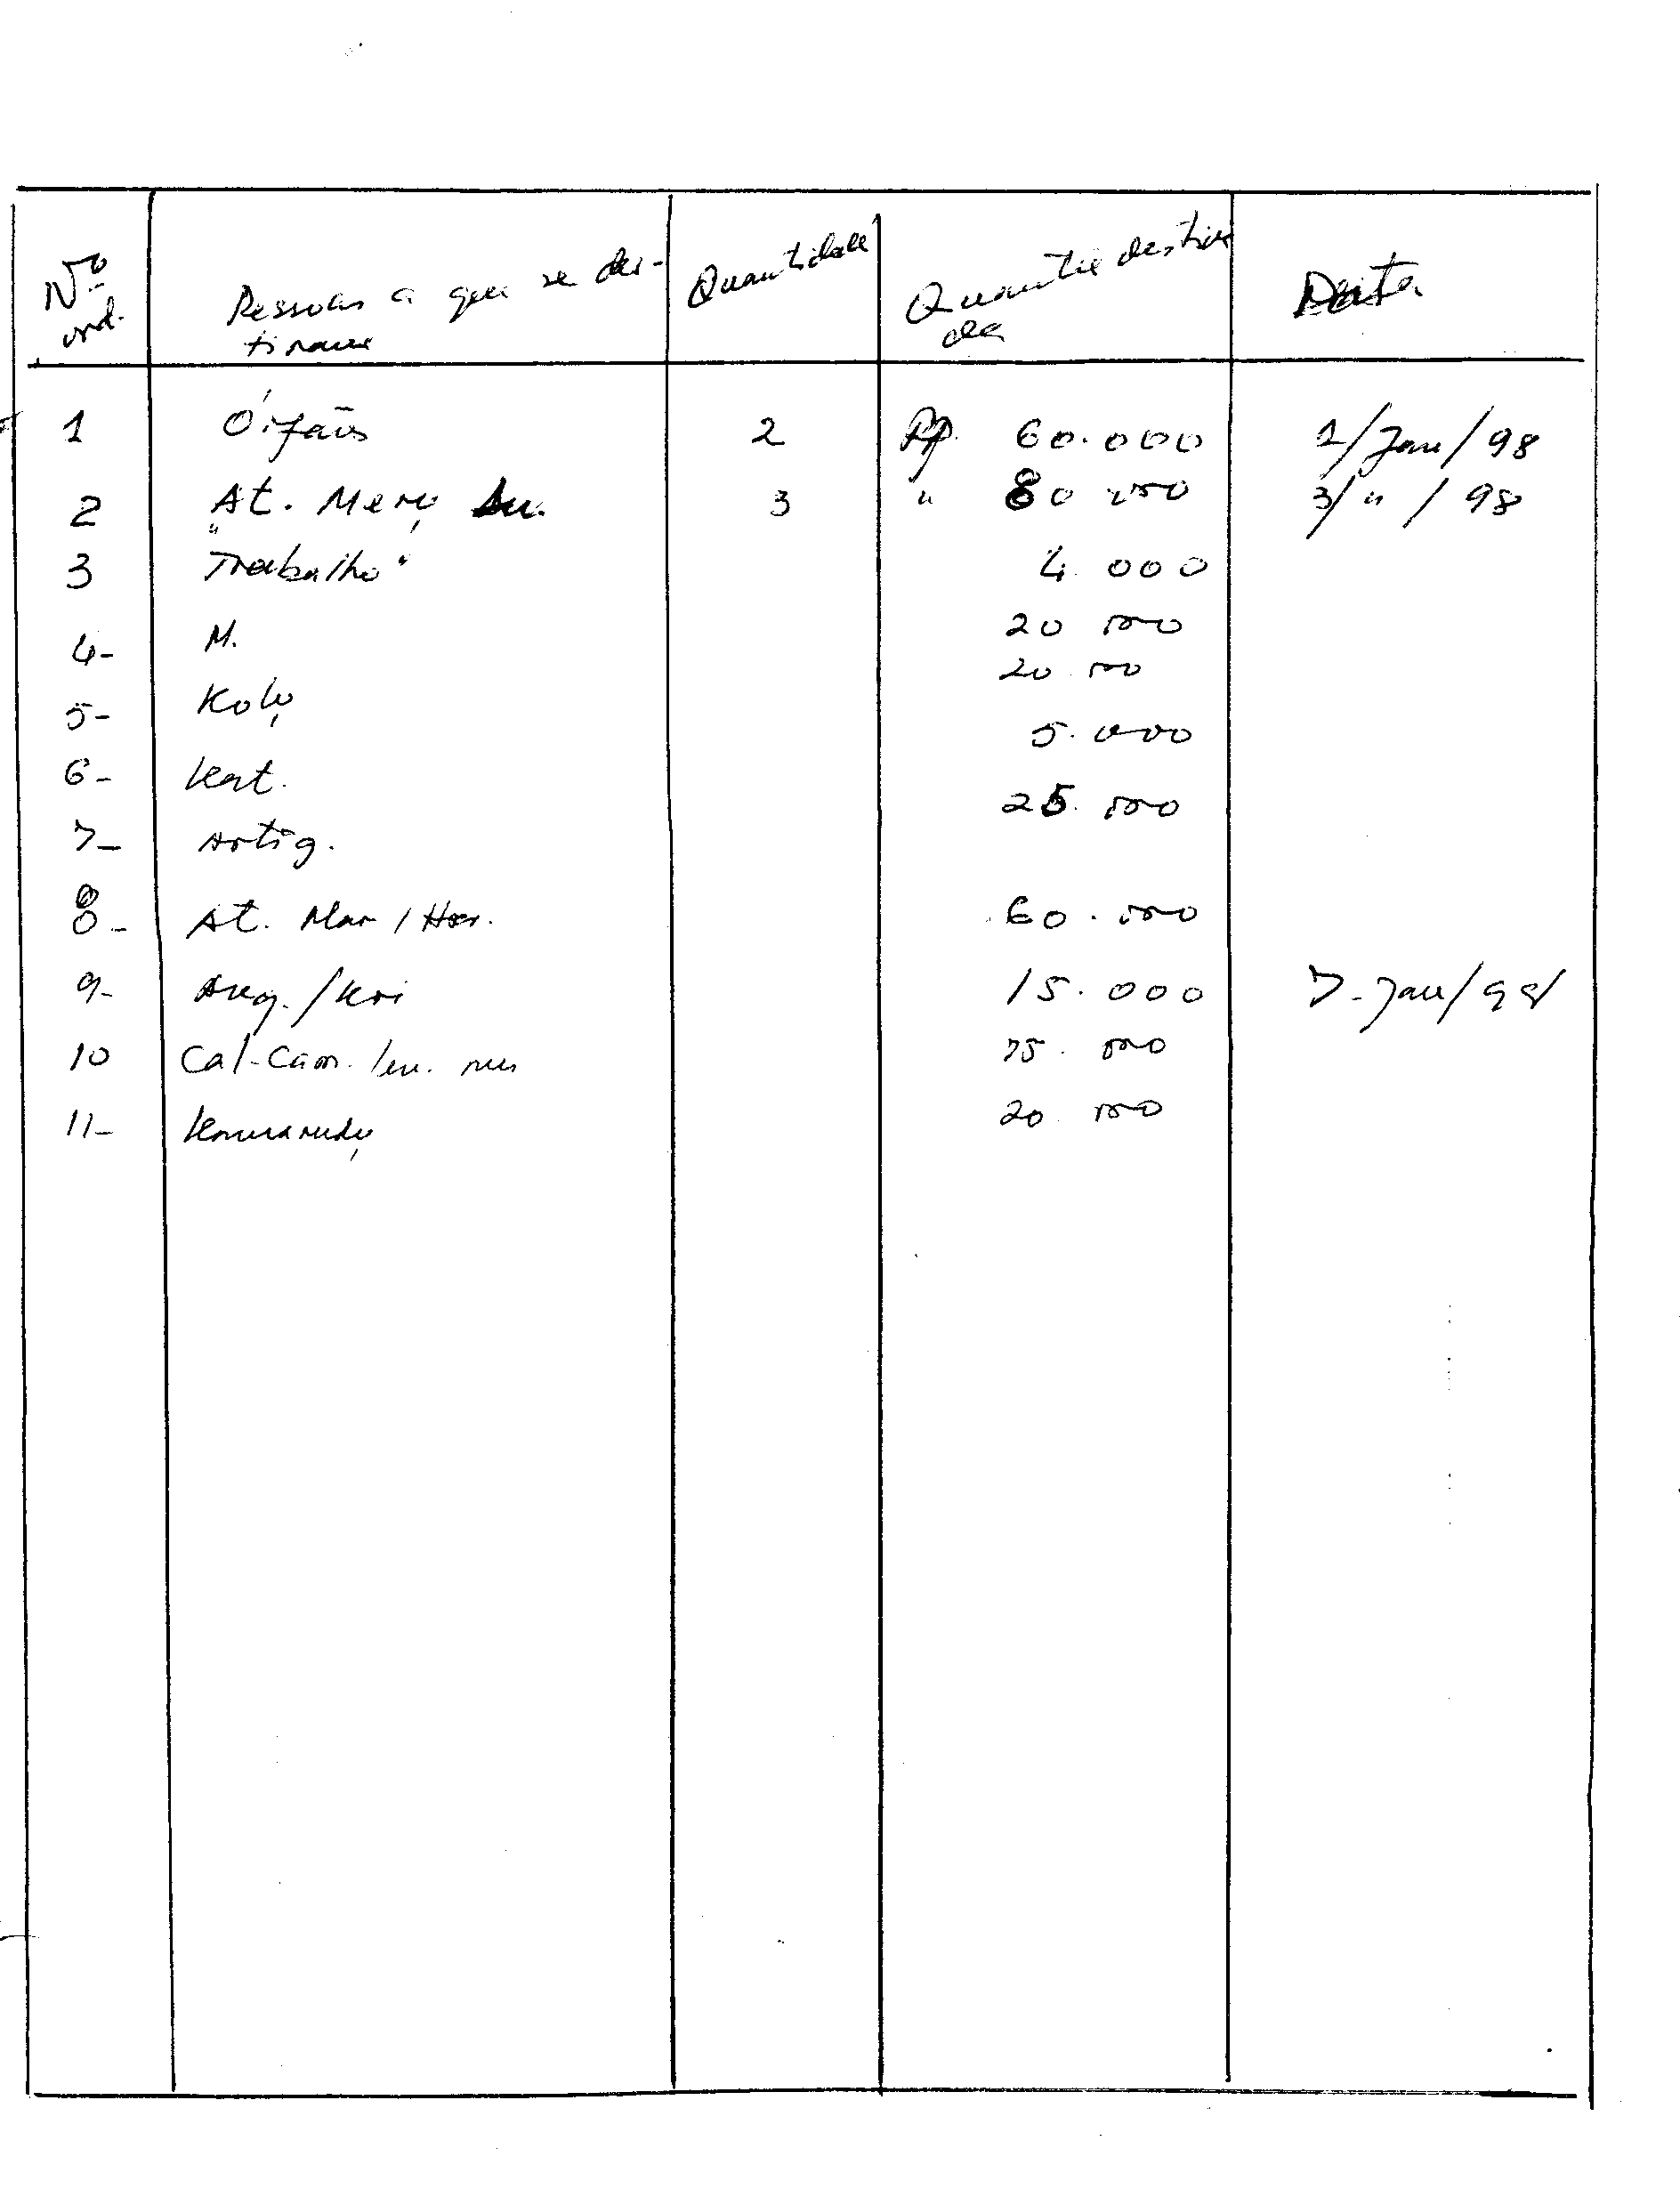 Nº ord. Pessoas a que se des- Quantidade Quantia destina Data
tinam da
1 Órfãos 2 Rp. 60.000 1/Jan/98
2 At. Meny 3 " 80 000 3/ " / 98
3 "Trabalho" 4.000
4- M. 20 000
20.000
5- Koly 5.000
6- Kat. 25.000
7- Artig.
8- At. Mar / Hor. 60.000
9- Aug. / Kri 15.000 7-Jan/98
10 Cal-Cam. 75.000
11- 20.000